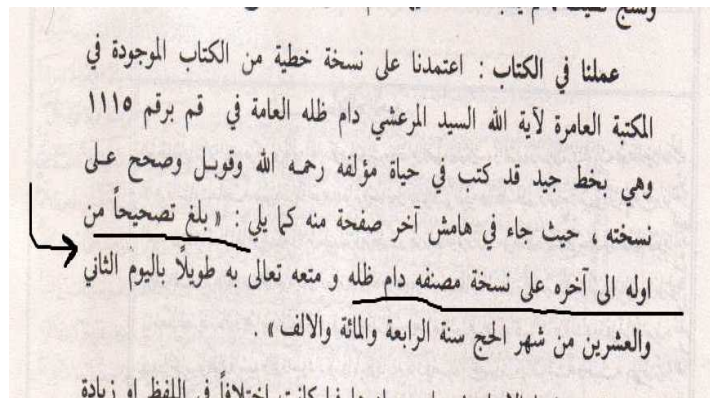 عملنا في الكتاب : اعتمدنا على نسخة خطية من الكتاب الموجودة في
المكتبة العامرة لآية الله السيد المرعشي دام ظله العامة في قم برقم ١١١٥
وهي بخط جيد قد كتب في حياة مؤلفه رحمه الله وقوبل وصحح على
نسخته ، حيث جاء في هامش آخر صفحة منه كما يلي : « بلغ تصحيحاً من
اوله الى آخره على نسخة مصنفه دام ظله و متعه تعالى به طويلًا باليوم الثاني
والعشرين من شهر الحج سنة الرابعة والمائة والالف » .
اختلافاً في اللفظ او زيادة